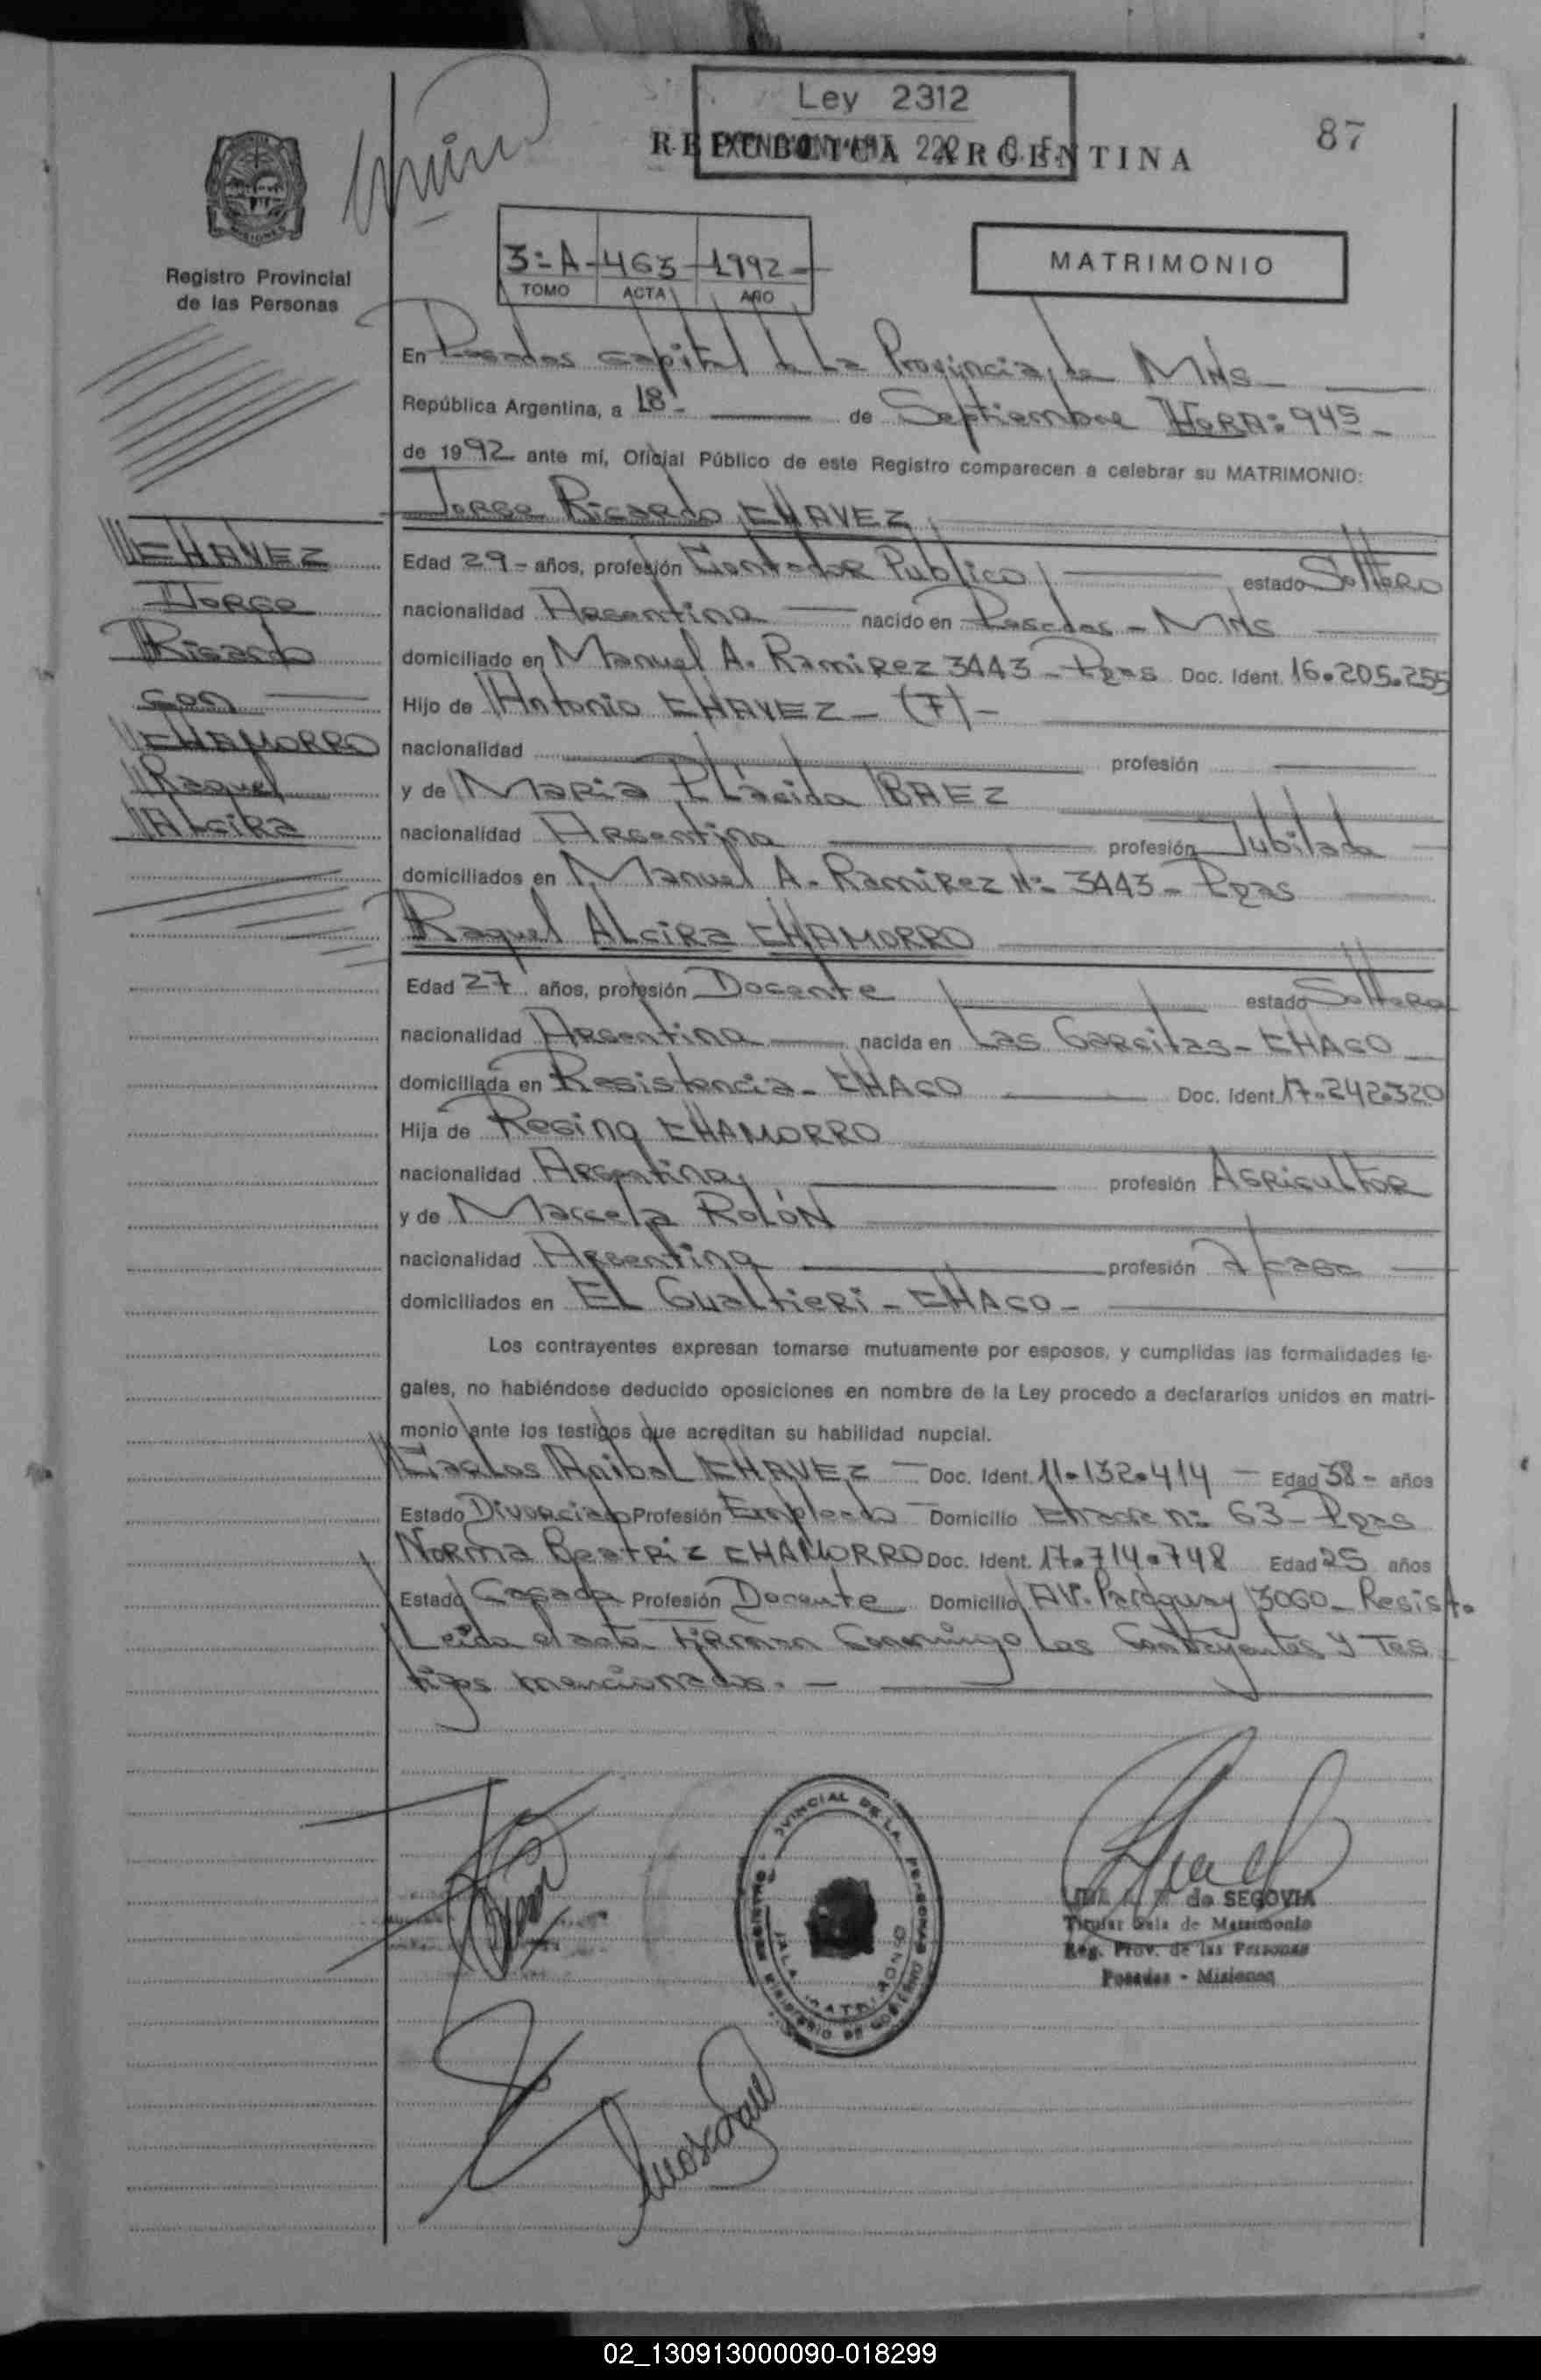 Ley 2312
87
REPUBLICA ARGENTINA
MISIONES
Registro Provincial
de las Personas
3=A-463-1992-
TOMO ACTA AÑO
MATRIMONIO
En Posadas capital de La Provincia de MNS
República Argentina, a 18- de Septiembre HORA: 945-
de 1992 ante mí, Oficial Público de este Registro comparecen a celebrar su MATRIMONIO:
Jorge Ricardo CHAVEZ
CHAVEZ
Jorge
Ricardo
con
CHAMORRO
Raquel
Alcira
Edad 29- años, profesión Contador Publico estado Soltero
nacionalidad Argentina nacido en Posadas - MNS
domiciliado en Manuel A. Ramirez 3443 - Pdas Doc. Ident. 16.205.255
Hijo de Antonio CHAVEZ - (F) -
nacionalidad profesión
y de Maria Plácida BAEZ
nacionalidad Argentina profesión Jubilada
domiciliados en Manuel A. Ramirez Nº 3443 - Pdas
Raquel Alcira CHAMORRO
Edad 27 años, profesión Docente estado Soltera
nacionalidad Argentina nacida en Las Garcitas - CHACO
domiciliada en Resistencia - CHACO Doc. Ident. 17.242.320
Hija de Regino CHAMORRO
nacionalidad Argentina profesión Agricultor
y de Marcela ROLÓN
nacionalidad Argentina profesión a/casa
domiciliados en El Gualtieri - CHACO -
Los contrayentes expresan tomarse mutuamente por esposos, y cumplidas las formalidades le-
gales, no habiéndose deducido oposiciones en nombre de la Ley procedo a declararlos unidos en matri-
monio ante los testigos que acreditan su habilidad nupcial.
Carlos Anibal CHAVEZ - Doc. Ident. 11.132.414 - Edad 38 - años
Estado Divorciado Profesión Empleado - Domicilio nº 63 - Pdas
Norma Beatriz CHAMORRO Doc. Ident. 17.714.748 Edad 25 años
Estado Casada Profesión Docente Domicilio AV. Paraguay 3060 - Resist.
Leida el acta Firman Conmigo Los Contrayentes y Tes
tigos mencionados. -
REGISTRO PROVINCIAL DE LA PERSONAS
SALA MATRIMONIO
MINISTERIO DE GOBIERNO
de SEGOVIA
Titular Sala de Matrimonio
Reg. Prov. de las Personas
Posadas - Misiones
02_130913000090-018299